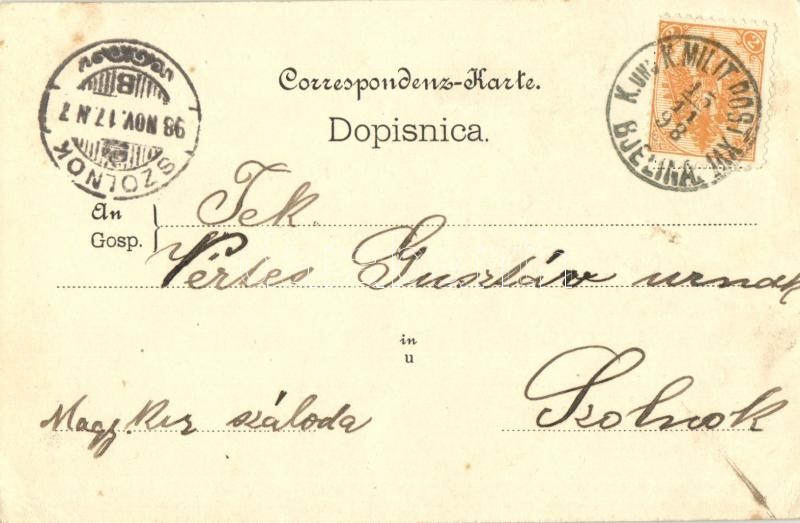 Correspondenz-Karte.
Dopisnica.
SZOLNOK
98 NOV. 17. N 7
B
K. UND K. MILIT. POST
15
11
98
BJELINA
2
2
An
Gosp.
Tek.
Vértes Gusztáv urnak
in
u
Magy. Kir szálloda
Szolnok